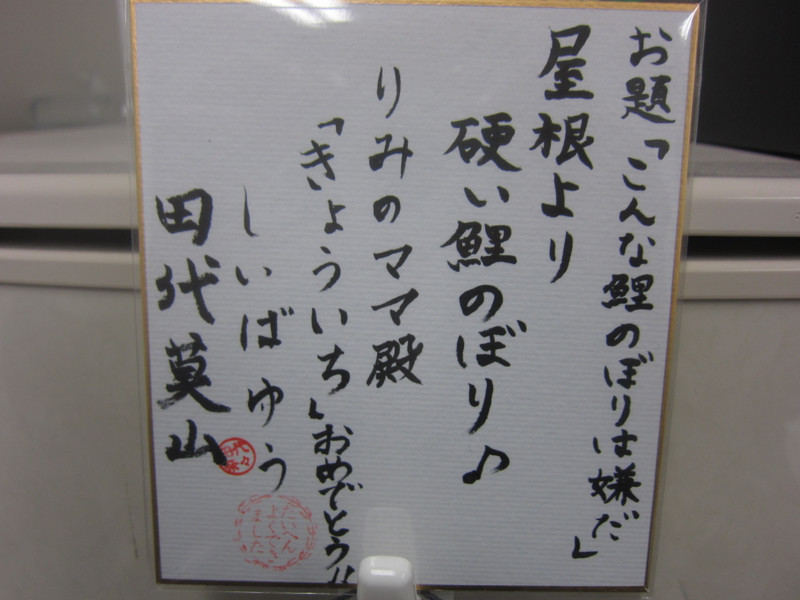 お題「こんな鯉のぼりは嫌だ」
屋根より
硬い鯉のぼり♪
りみのママ殿
「きょういち」おめでとう!!
しいばゆう
田代莫山
たいへん
よくでき
ました